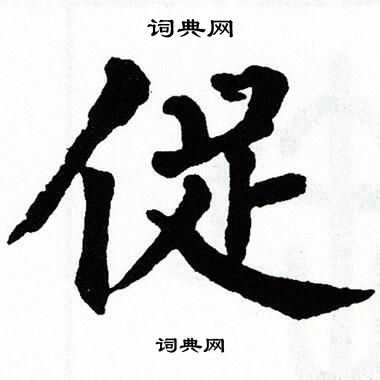 词典网
促
词典网